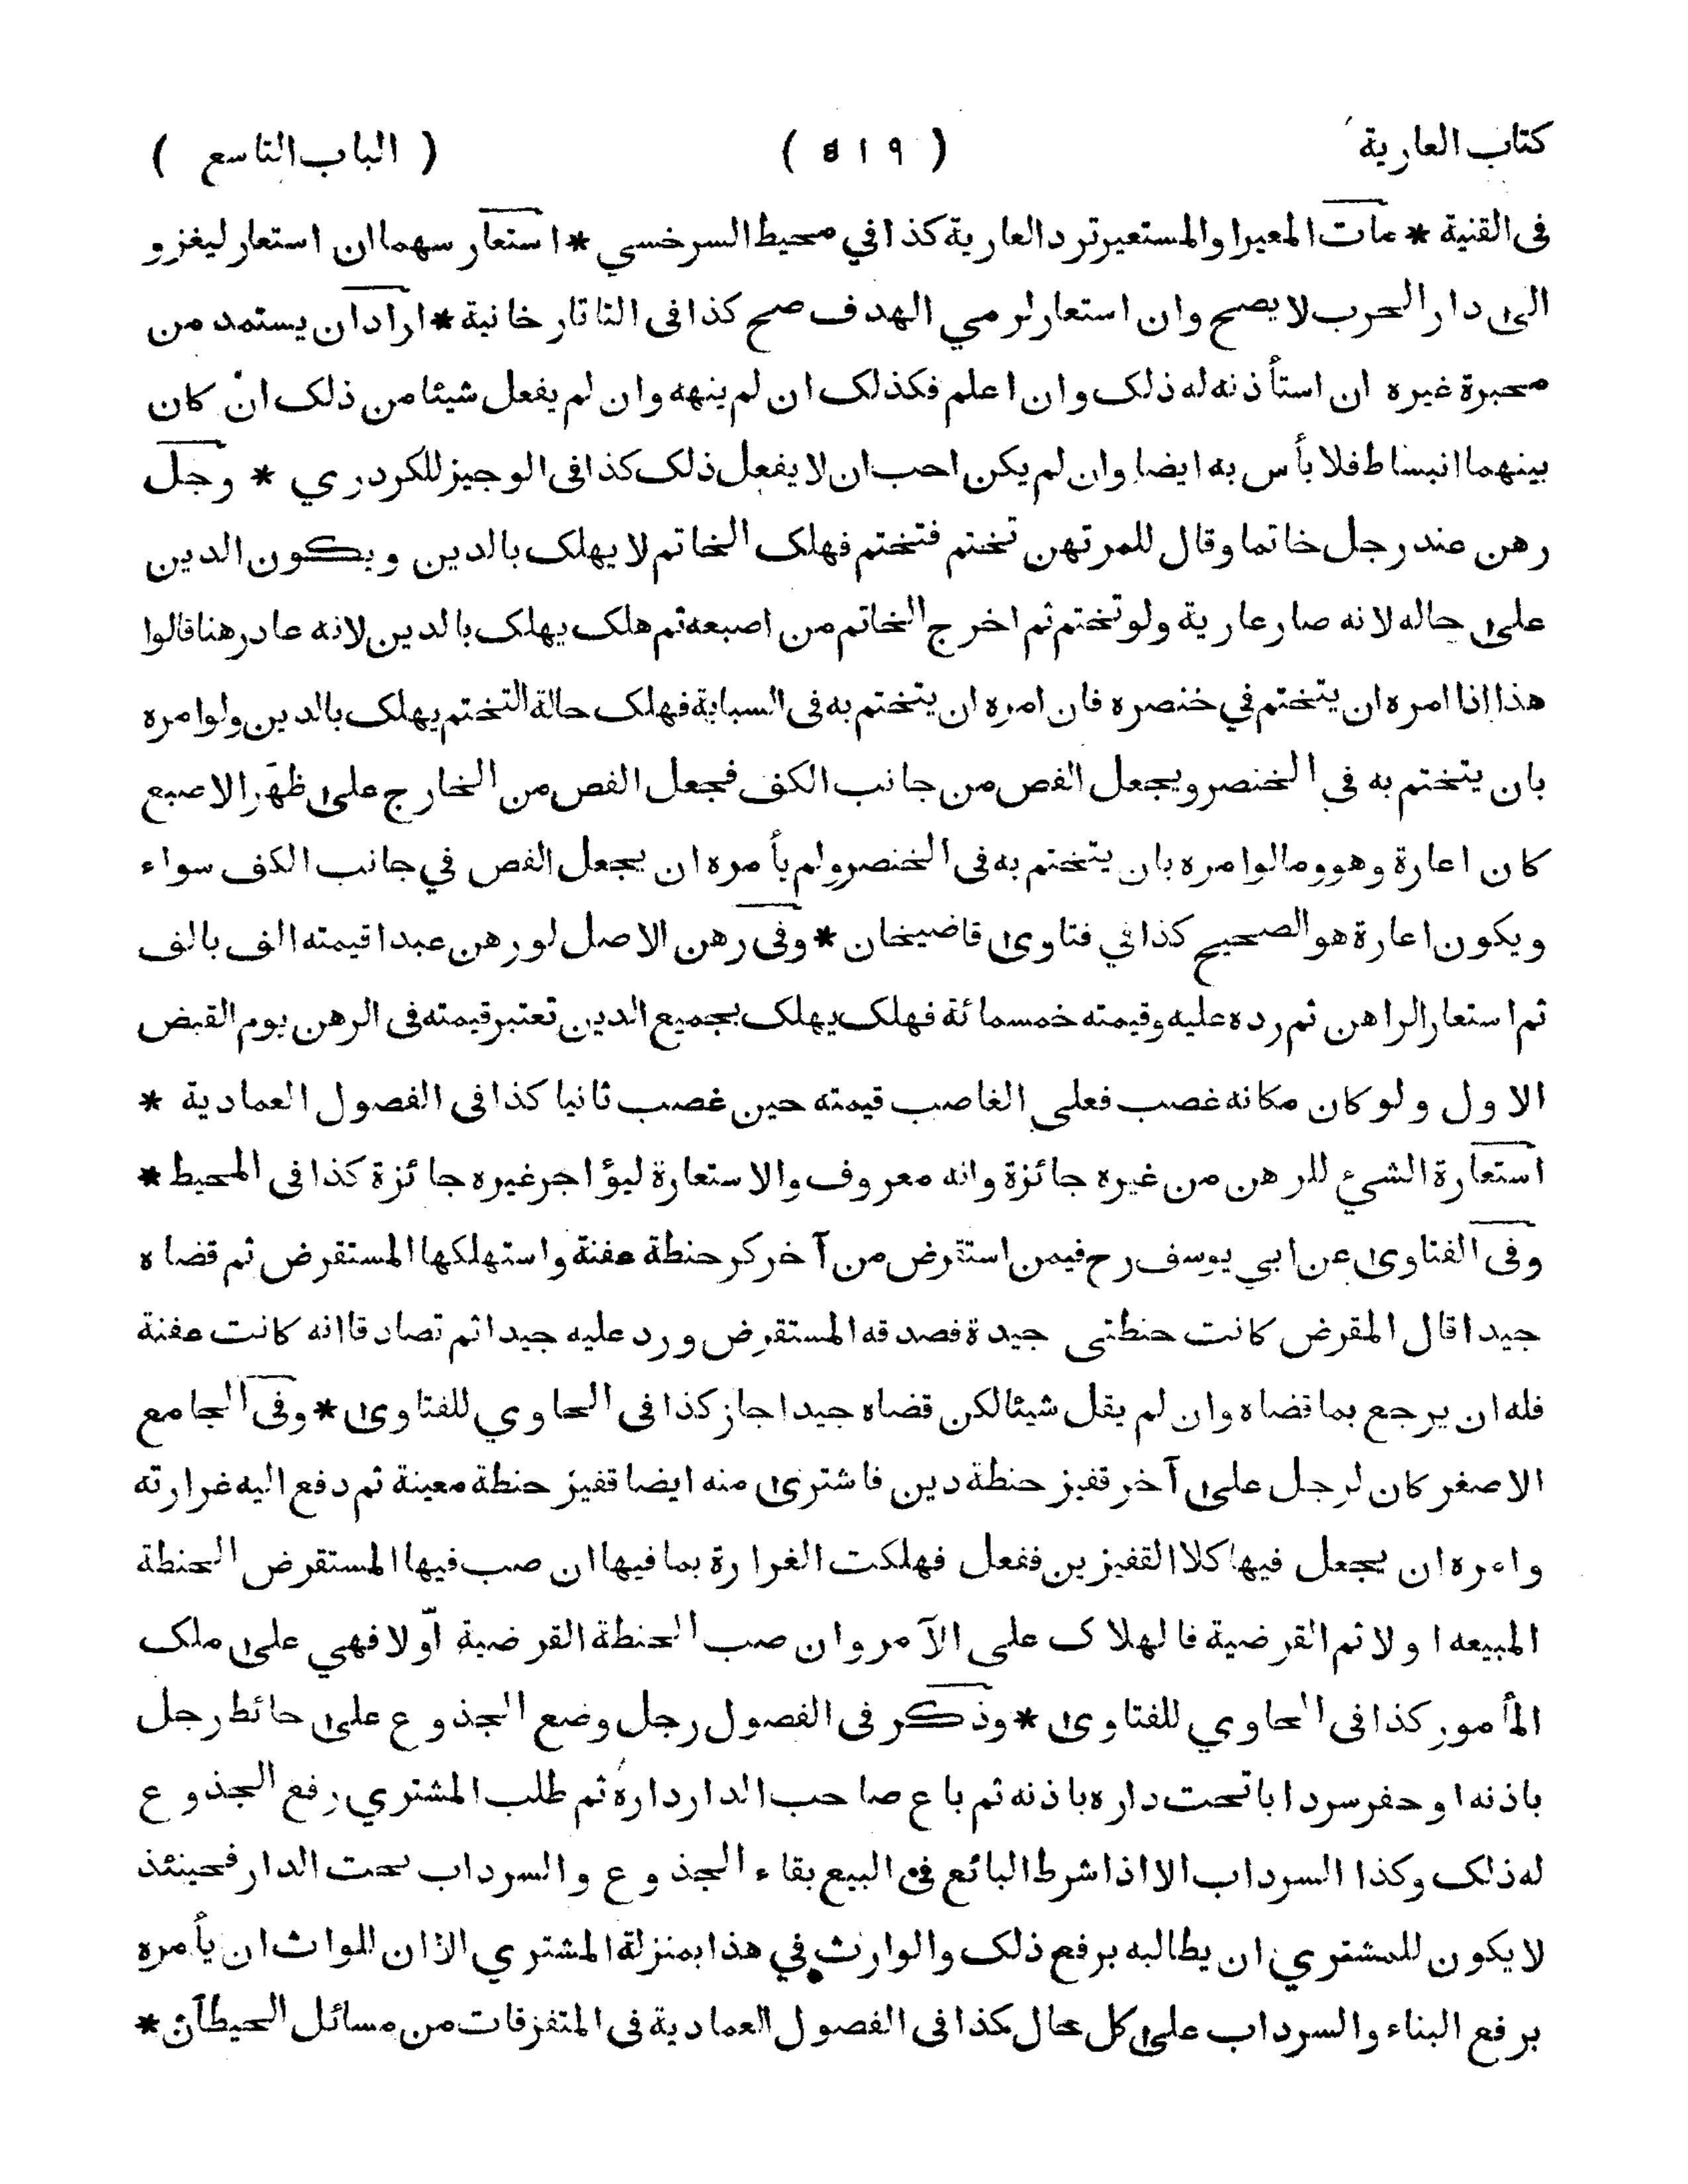 كتاب العارية ( ٥١٩ ) ( الباب التاسع )
فى القنية * مات المعير او المستعير ترد العارية كذا في محيط السرخسي * استعار سهما ان استعار ليغزو
الى دار الحرب لا يصح وان استعار لرمي الهدف صح كذا فى التاتار خانية * اراد ان يستمد من
محبرة غيره ان استأذنه له ذلك وان اعلم فكذلك ان لم ينهه وان لم يفعل شيئا من ذلك ان كان
بينهما انبساط فلا بأس به ايضا وان لم يكن احب ان لا يفعل ذلك كذا فى الوجيز للكردري * رجل
رهن عند رجل خاتما وقال للمرتهن تختم فتختم فهلك الخاتم لا يهلك بالدين ويكون الدين
على حاله لانه صار عارية ولو تختم ثم اخرج الخاتم من اصبعه ثم هلك يهلك بالدين لانه عاد رهنا قالوا
هذا اذا امره ان يتختم في خنصره فان امره ان يتختم به فى السبابة فهلك حالة التختم يهلك بالدين ولو امره
بان يتختم به في الخنصر ويجعل الفص من جانب الكف فجعل الفص من الخارج على ظهر الاصبع
كان اعارة وهو وما لو امره بان يتختم به فى الخنصر ولم يأمره ان يجعل الفص في جانب الكف سواء
ويكون اعارة هو الصحيح كذا في فتاوى قاضيخان * وفى رهن الاصل لو رهن عبدا قيمته الف بالف
ثم استعار الراهن ثم رده عليه وقيمته خمسمائة فهلك يهلك بجميع الدين تعتبر قيمته فى الرهن يوم القبض
الاول ولو كان مكانه غصب فعلى الغاصب قيمته حين غصب ثانيا كذا فى الفصول العمادية *
استعارة الشيء للرهن من غيره جائزة وانه معروف والاستعارة ليؤاجر غيره جائزة كذا فى المحيط *
وفى الفتاوى عن ابي يوسف رح فيمن استقرض من آخر كر حنطة عفنة واستهلكها المستقرض ثم قضاه
جيدا قال المقرض كانت حنطتى جيدة فصدقه المستقرض ورد عليه جيدا ثم تصادقا انه كانت عفنة
فله ان يرجع بما قضاه وان لم يقل شيئا لكن قضاه جيدا جاز كذا فى الحاوي للفتاوى * وفى الجامع
الاصغر كان لرجل على آخر قفيز حنطة دين فاشترى منه ايضا قفيز حنطة معينة ثم دفع اليه غرارته
وامره ان يجعل فيها كلا القفيزين ففعل فهلكت الغرارة بما فيها ان صب فيها المستقرض الحنطة
المبيعه اولا ثم القرضية فالهلاك على الآمر وان صب الحنطة القرضية اوّلا فهي على ملك
المأمور كذا فى الحاوي للفتاوى * وذكر فى الفصول رجل وضع الجذوع على حائط رجل
باذنه او حفر سردابا تحت داره باذنه ثم باع صاحب الدار داره ثم طلب المشتري رفع الجذوع
له ذلك وكذا السرداب الا اذا شرط البائع فى البيع بقاء الجذوع والسرداب تحت الدار فحينئذ
لا يكون للمشتري ان يطالبه برفع ذلك والوارث في هذا بمنزلة المشتري الا ان للواث ان يأمره
برفع البناء والسرداب على كل حال كذا فى الفصول العمادية فى المتفرقات من مسائل الحيطان *